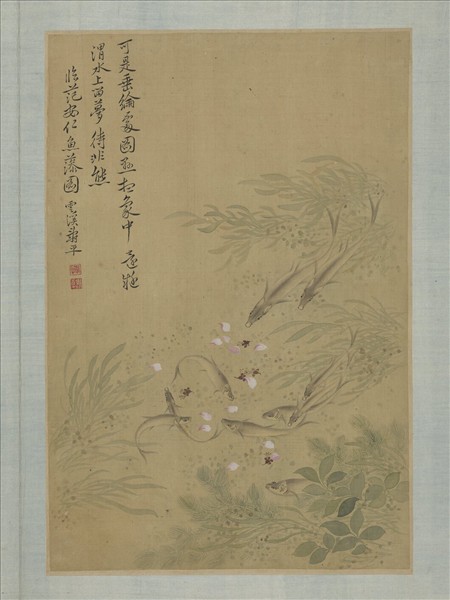 可是垂綸處圖象中還疑
渭水上留夢待非熊
臨范安仁魚藻圖 雲溪壽平